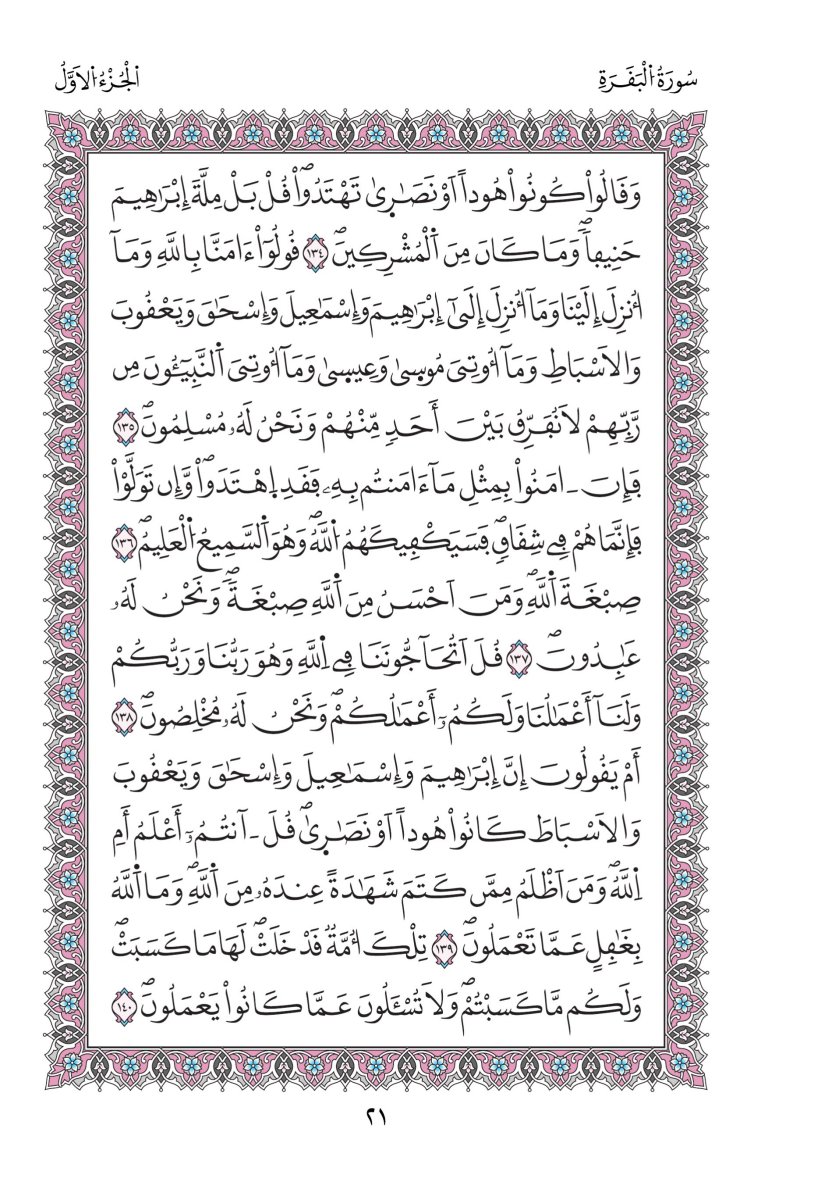 سُورَةُ اُ۬لْبَقَرَةِ
اُ۬لْجُزْءُ اُ۬لَاوَّلُ
وَقَالُواْ كُونُواْ هُوداً اَوْ نَصَٰرِىٰ تَهْتَدُواْۖ قُلْ بَلْ مِلَّةَ إِبْرَٰهِيمَ
حَنِيفاٗۖ وَمَا كَانَ مِنَ اَ۬لْمُشْرِكِينَۖ ١٣٤ قُولُوٓاْ ءَامَنَّا بِاللَّهِ وَمَآ
أُنزِلَ إِلَيْنَا وَمَآ أُنزِلَ إِلَىٰٓ إِبْرَٰهِيمَ وَإِسْمَٰعِيلَ وَإِسْحَٰقَ وَيَعْقُوبَ
وَالَاسْبَاطِ وَمَآ أُوتِىَ مُوسِىٰ وَعِيسِىٰ وَمَآ أُوتِىَ اَ۬لنَّبِيٓـُٔونَ مِن
رَّبِّهِمْ لَا نُفَرِّقُ بَيْنَ أَحَدٖ مِّنْهُمْ وَنَحْنُ لَهُۥ مُسْلِمُونَۖ ١٣٥
فَإِنَ اٰمَنُواْ بِمِثْلِ مَآ ءَامَنتُم بِهِۦ فَقَدِ اِ۪هْتَدَواْۖ وَّإِن تَوَلَّوْاْ
فَإِنَّمَا هُمْ فِے شِقَاقٖۖ فَسَيَكْفِيكَهُمُ اُ۬للَّهُۖ وَهُوَ اَ۬لسَّمِيعُ اُ۬لْعَلِيمُۖ ١٣٦
صِبْغَةَ اَ۬للَّهِۖ وَمَنَ اَحْسَنُ مِنَ اَ۬للَّهِ صِبْغَةٗۖ وَنَحْنُ لَهُۥ
عَٰبِدُونَۖ ١٣٧ قُلَ اَتُحَآجُّونَنَا فِے اِ۬للَّهِ وَهُوَ رَبُّنَا وَرَبُّكُمْ
وَلَنَآ أَعْمَٰلُنَا وَلَكُمُۥٓ أَعْمَٰلُكُمْۖ وَنَحْنُ لَهُۥ مُخْلِصُونَۖ ١٣٨
أَمْ يَقُولُونَ إِنَّ إِبْرَٰهِيمَ وَإِسْمَٰعِيلَ وَإِسْحَٰقَ وَيَعْقُوبَ
وَالَاسْبَاطَ كَانُواْ هُوداً اَوْ نَصَٰرِىٰۖ قُلَ آنتُمُۥٓ أَعْلَمُ أَمِ
اِ۬للَّهُۖ وَمَنَ اَظْلَمُ مِمَّن كَتَمَ شَهَٰدَةً عِندَهُۥ مِنَ اَ۬للَّهِۖ وَمَا اَ۬للَّهُ
بِغَٰفِلٍ عَمَّا تَعْمَلُونَۖ ١٣٩ تِلْكَ أُمَّةٞ قَدْ خَلَتْۖ لَهَا مَا كَسَبَتْۖ
وَلَكُم مَّا كَسَبْتُمْۖ وَلَا تُسْـَٔلُونَ عَمَّا كَانُواْ يَعْمَلُونَۖ ١٤٠
٢١